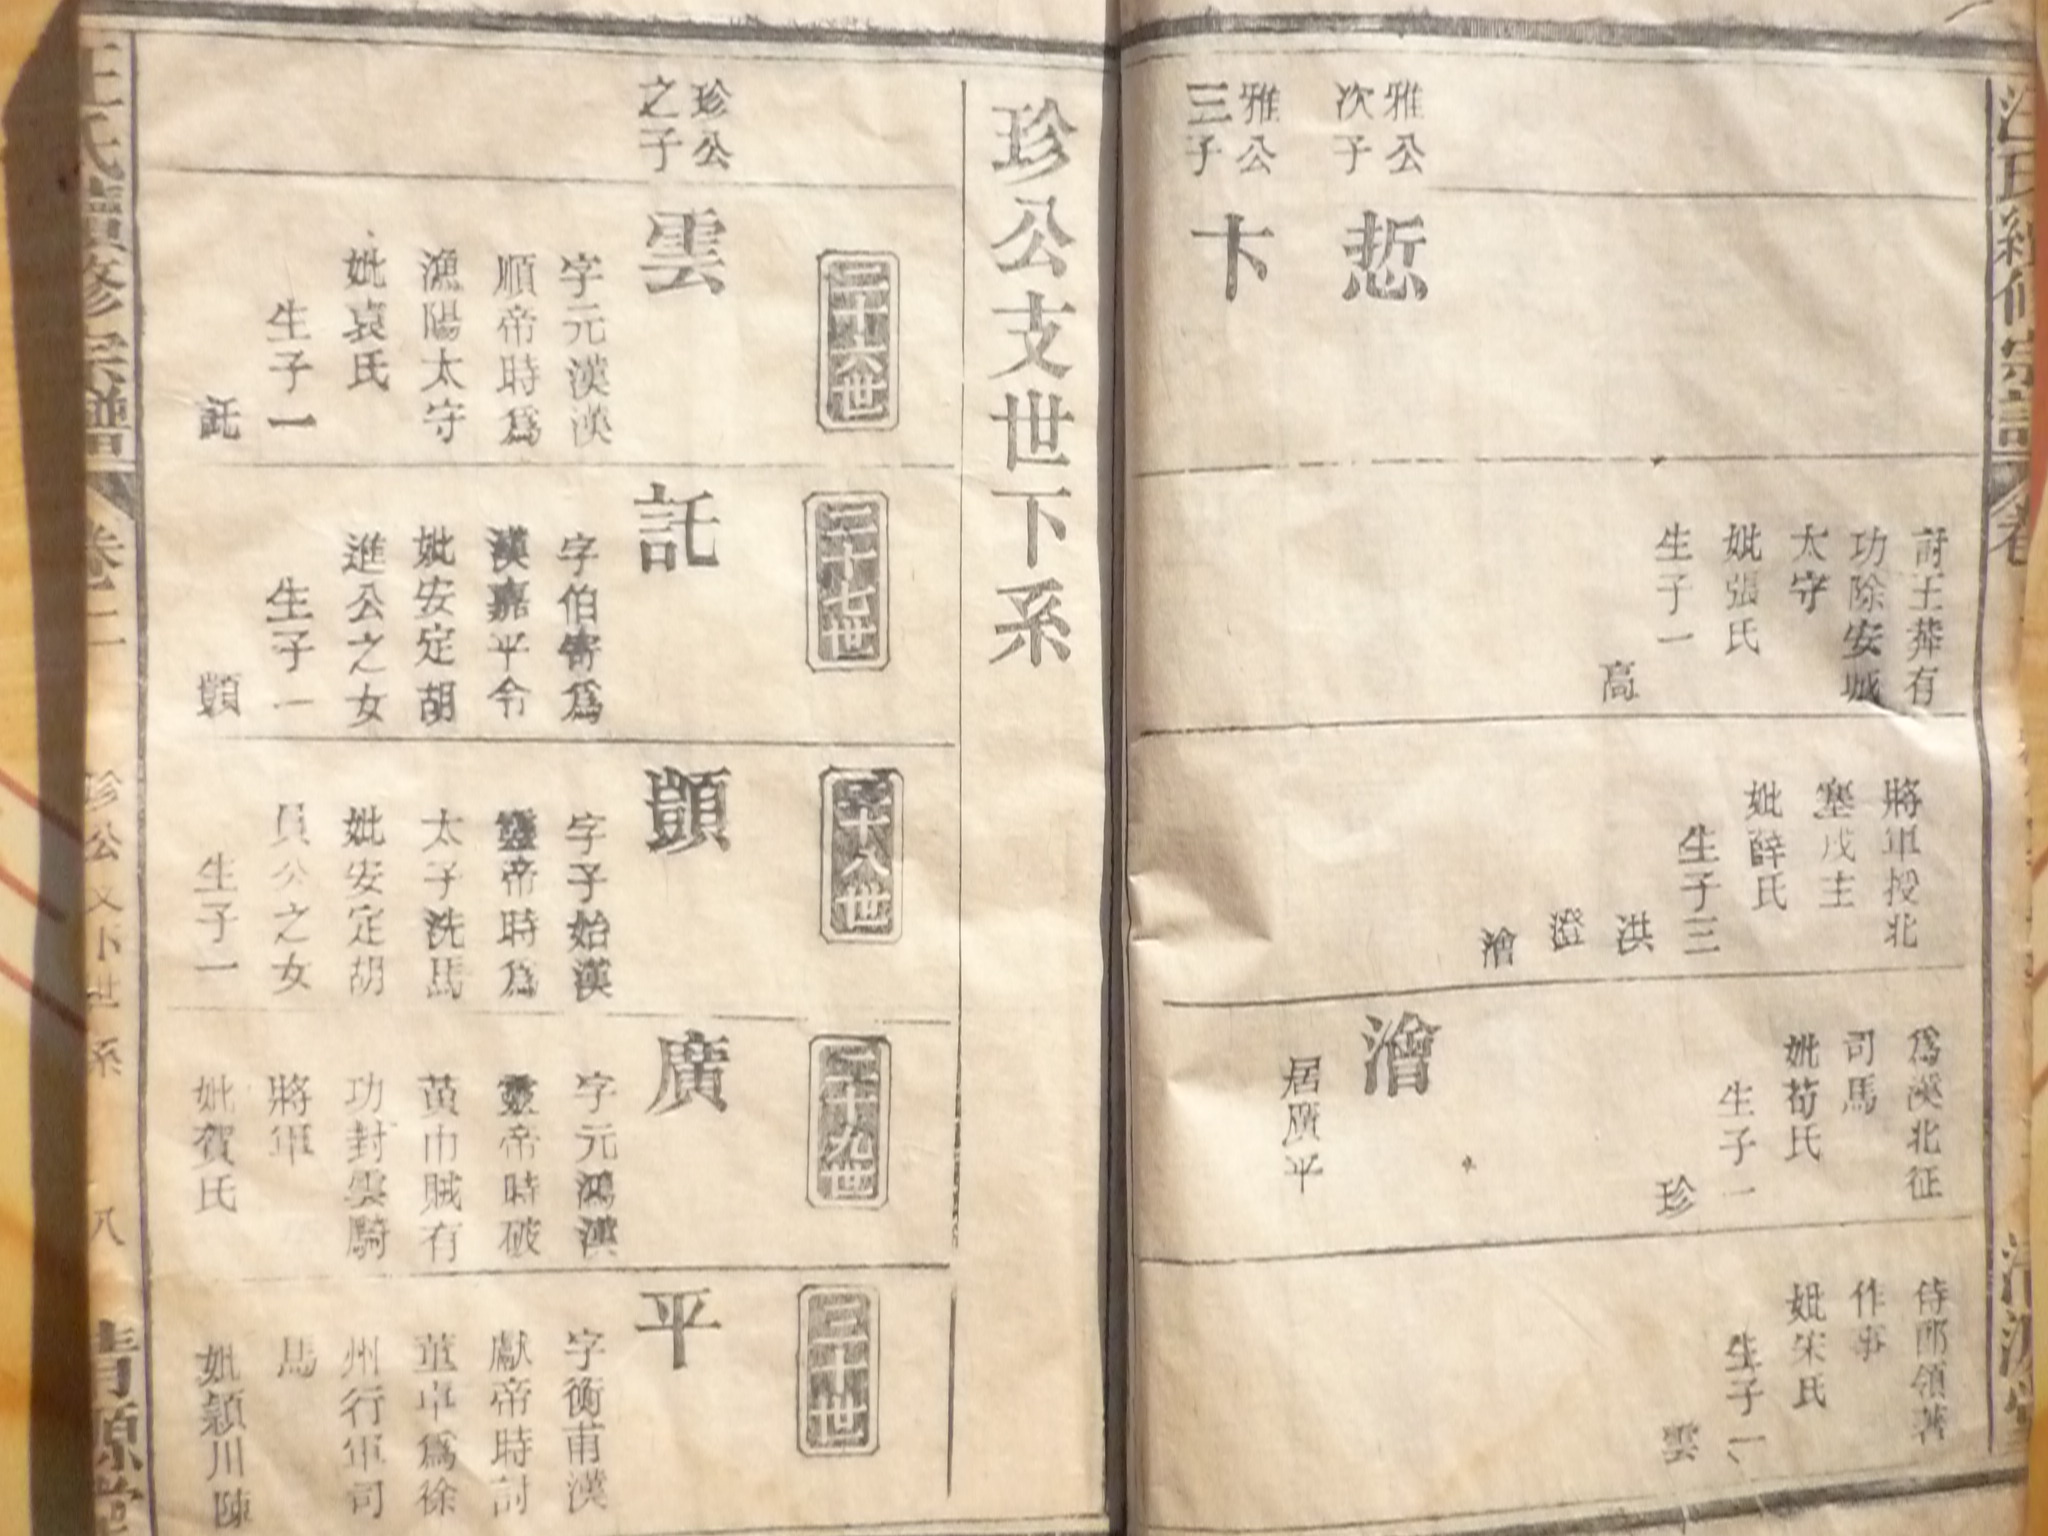 雅公
次子
悊
雅公
三子
卞
討王莽有
功除安城
太守
妣張氏
生子一
高
將軍投北
塞戍主
妣薛氏
生子三
洪
澄
澮
爲漢北征
司馬
妣荀氏
生子一
珍
澮
居廣平
侍郎領著
作事
妣朱氏
生子一
雲
珍公支世下系
二十六世
珍公
之子
雲
字元漢漢
順帝時爲
漁陽太守
妣袁氏
生子一
託
二十七世
託
字伯寄爲
漢嘉平令
妣安定胡
進公之女
生子一
顗
二十八世
顗
字子始漢
靈帝時爲
太子洗馬
妣安定胡
員公之女
生子一
二十九世
廣
字元鴻漢
靈帝時破
黃巾賊有
功封雲騎
將軍
妣賀氏
三十世
平
字衡甫漢
獻帝時討
董卓爲徐
州行軍司
馬
妣潁川陳
汪氏續修宗譜
卷二
珍公支下世系
八
清源堂